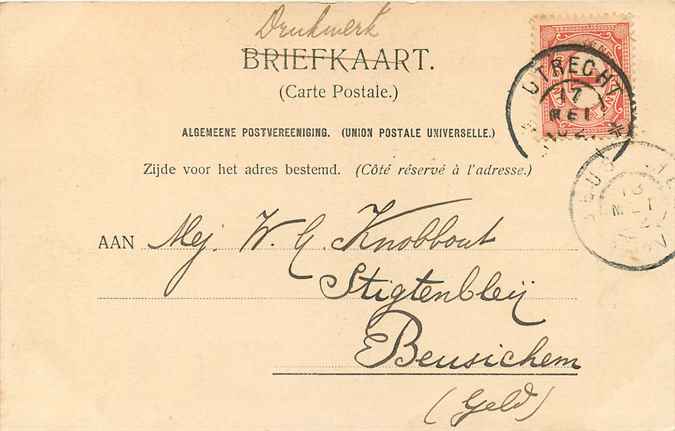 Drukwerk
BRIEFKAART.
(Carte Postale.)
ALGEMEENE POSTVEREENIGING. (UNION POSTALE UNIVERSELLE.)
Zijde voor het adres bestemd. (Côté réservé à l'adresse.)
UTRECHT
17
MEI
AAN Mej. W. G. Knobbout
Stigtenbleij
Beusichem
(Geld)